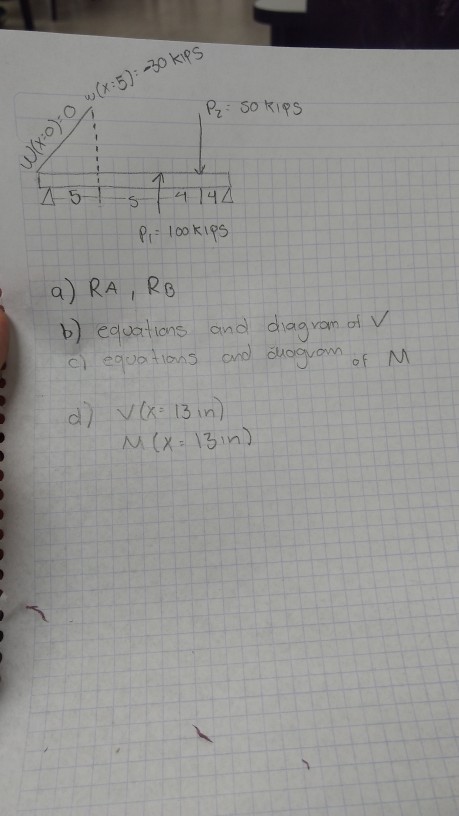 w(x=5)=-30 KIPS
W(x=0)=0
P2= 50 KIPS
5 5 4 4
P1= 100 KIPS
a) RA, RB
b) equations and diagram of V
c) equations and diagram of M
d) V(x= 13 in)
M(x= 13 in)